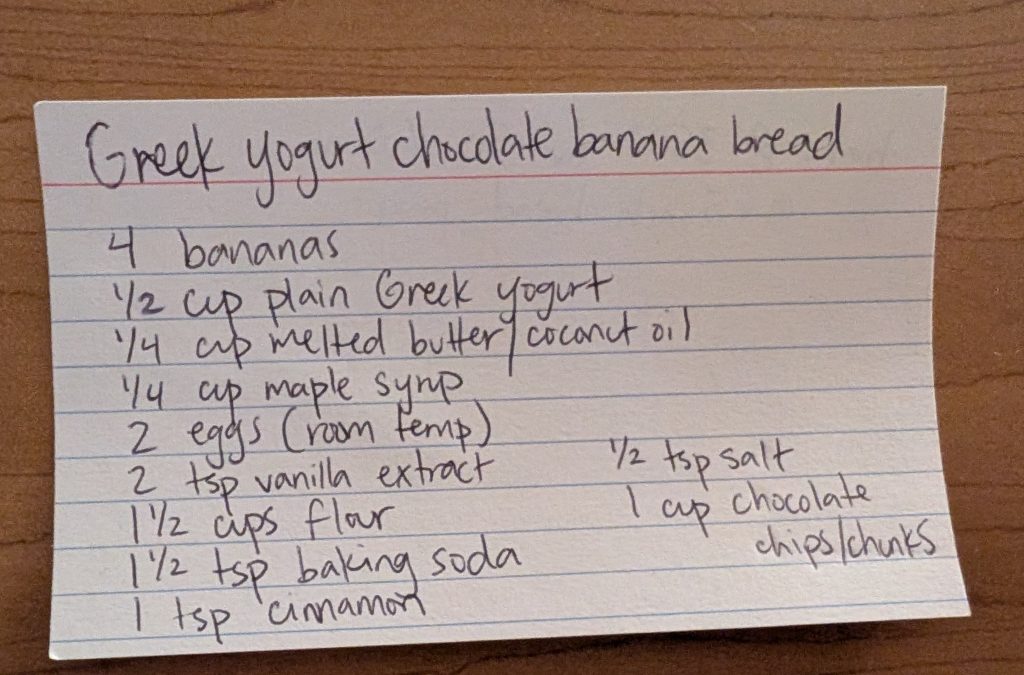 Greek yogurt chocolate banana bread
4 bananas
1/2 cup plain Greek yogurt
1/4 cup melted butter/coconut oil
1/4 cup maple syrup
2 eggs (room temp)
2 tsp vanilla extract
1 1/2 cups flour
1 1/2 tsp baking soda
1 tsp cinnamon
1/2 tsp salt
1 cup chocolate
chips/chunks